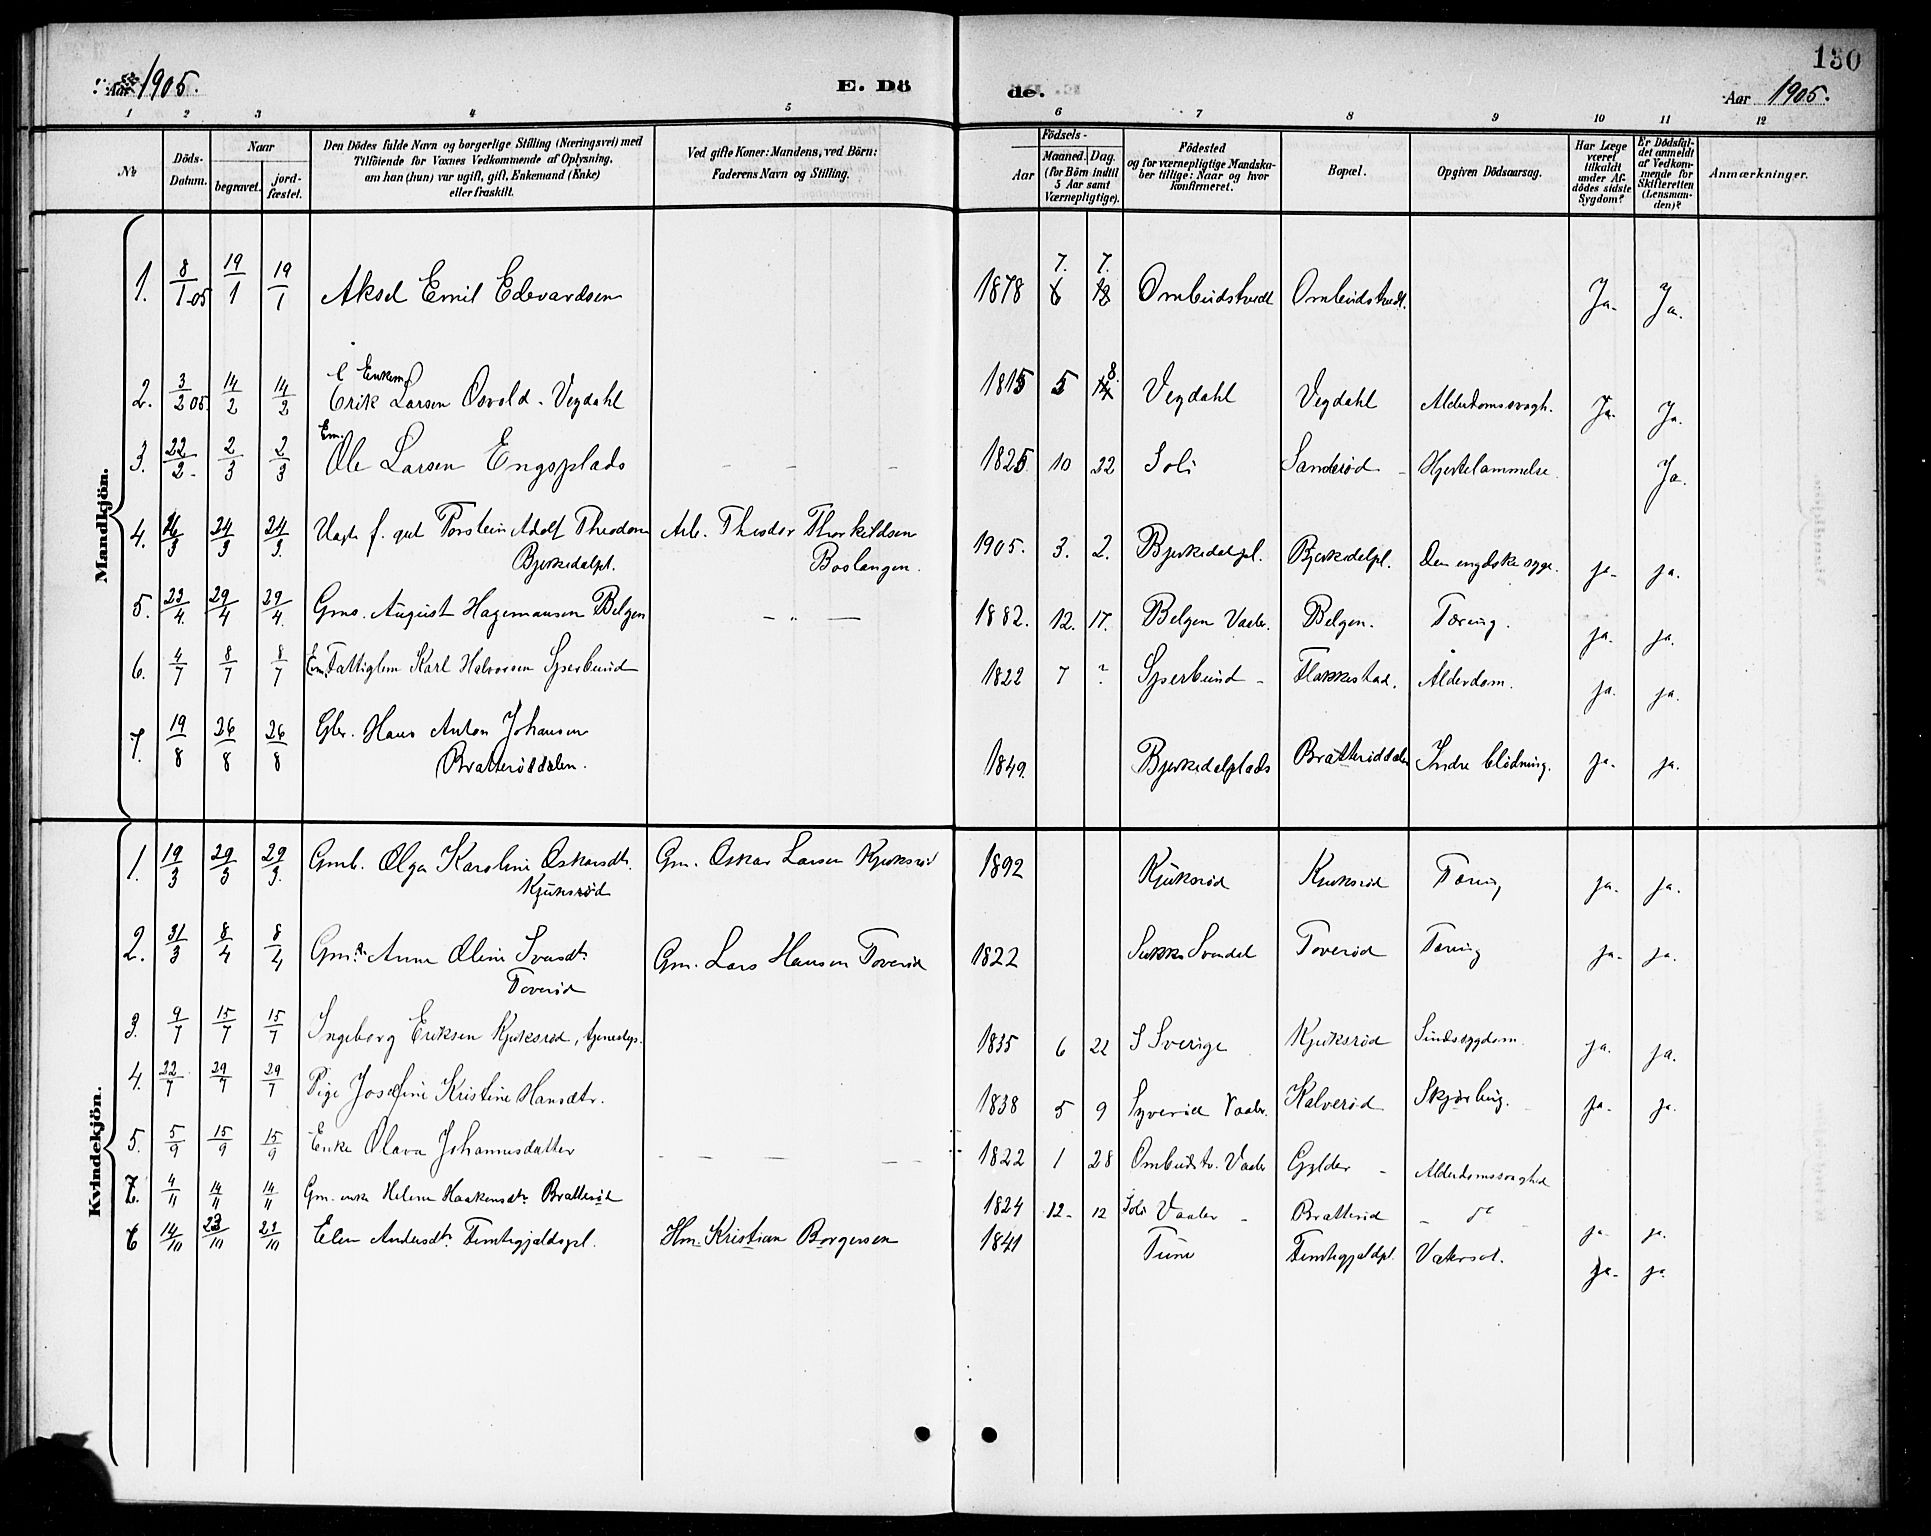 130
Aar 1905.
E. Dö
de.
Aar 1905.
1 2 3 4 5 6 7 8 9 10 11 12
No
Döds-
Datum.
Naar
begravet.
jord-
fæstet.
Den Dödes fulde Navn og borgerlige Stilling (Næringsvei) med
Tilföiende for Voxnes Vedkommende af Oplysning,
om han (hun) var ugift, gift, Enkemand (Enke)
eller fraskilt.
Ved gifte Koner: Mandens, ved Börn:
Faderens Navn og Stilling.
Födsels-
Aar
Maaned. Dag.
(for Börn indtil
5 Aar samt
Værnepligtige).
Födested
og for værnepligtige Mandska-
ber tillige: Naar og hvor
konfirmeret.
Bopæl.
Opgiven Dödsaarsag.
Har Læge
været
tilkaldt
under Af-
dödes sidste
Sygdom?
Er Dödsfal-
det anmeldt
af Vedkom-
mende for
Skifteretten
(Lensman-
den)?
Anmærkninger.
Mandkjön.
1. 8/1 05 19/1 19/1 Aksel Emil Edevardsen 1878 7. 7. Ombudstvedt Ombudstvedt. Ja. Ja.
Enkem.
2. 3/2 05. 14/2 14/2 Erik Larsen Osvold - Vegdahl 1815 5 8. Vegdahl Vegdahl Alderdomssvagh. Ja. Ja.
Em.
3. 22/2 2/3 2/3 Ole Larsen Engsplads 1825 10 22 Soli Sanderød Hjertelammelse. Ja.
4. 16/3 24/3 24/3. Ugt. f. gut Torstein Adolf Theodorsen Arb. Theodor Thorkildsen 1905. 3. 2. Bjerkedalpl. Bjerkedalpl. Den engelske syge. ja. ja.
Bjerkedalpl. Boslangen.
5. 23/4. 29/4 29/4. Gms. August Hagemansen Belgen 1882. 12. 17. Belgen Vaaler. Belgen. Tæring. ja. ja.
6. 4/7 8/7 8/7 Em. Fattiglem Karl Halvorsen Spærbund 1822 7 ? Spærbund - Flakkestad. Alderdom. ja. ja.
7. 19/8 26/8 26/8 Gbr. Hans Anton Johansen
Bratterøddalen. 1849. Bjerkedalplads Bratterøddalen Indre blødning. ja. ja.
Kvindekjön.
1. 19/3 29/3 29/3. Gmb. Olga Karoline Oskarsdtr. Gm. Oskar Larsen Kjuksrød 1892 Kjuksrød Kjuksrød Tæring ja. ja.
Kjuksrød
2. 31/3 8/4 8/4 Gm. Anne Oline Svendsdtr. Gm. Lars Hansen Toverød 1822 Toverød Tæring ja. ja.
Toverød
3. 9/7 15/7 15/7 Ingeborg Eriksen Kjuksrød, tjenestep. 1835 6 22 I Sverige Kjuksrød Sindssygdom. ja. ja.
4. 22/7 29/7 29/7 Pige Josefine Kristine Hansdtr. 1838 5 9 Syverød Vaaler. Kalverød Skjørbug. ja. ja.
5. 5/9 15/9 15/9 Enke Olava Johannesdatter 1822 1 28 Ombudstv. Vaaler Gylder - Alderdomssvaghed
7. 4/11 14/11 14/11 Gm. enke Helene Haakensdtr. Bratterød 1824 12 - 12 Soli Vaaler - Bratterød - do - ja. ja.
6 14/10 23/10 22/10 Elen Andersdtr. Femtegjeldspl. Hm. Kristian Borgersen 1841 Tune Femtegjeldpl. Vatersot. ja. ja.